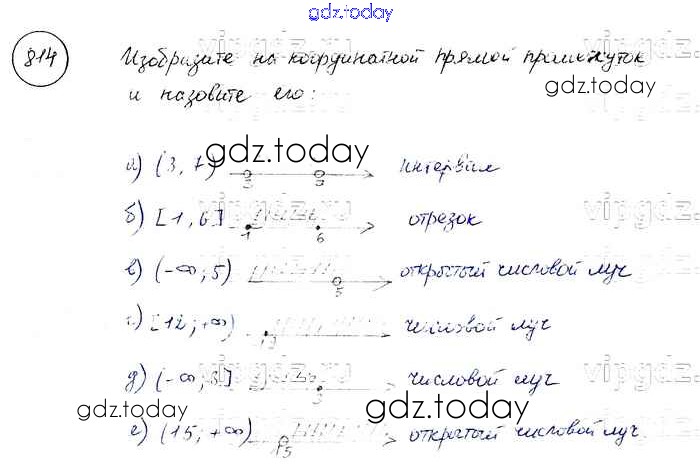 gdz.today
814 Изобразите на координатной прямой промежуток
vipgdz.ru
gdz.today
и назовите его:
gdz.today
а) (3, 7) 3 интервал
vipgdz.ru
б) [1, 6] 1 6 отрезок
в) (-∞; 5) 5 открытый числовой луч
vipgdz.ru
г) [12; +∞) 12 числовой луч
vipgdz.ru
д) (-∞; 3] 3 числовой луч
gdz.today
gdz.today
е) (15; +∞) 15 открытый числовой луч